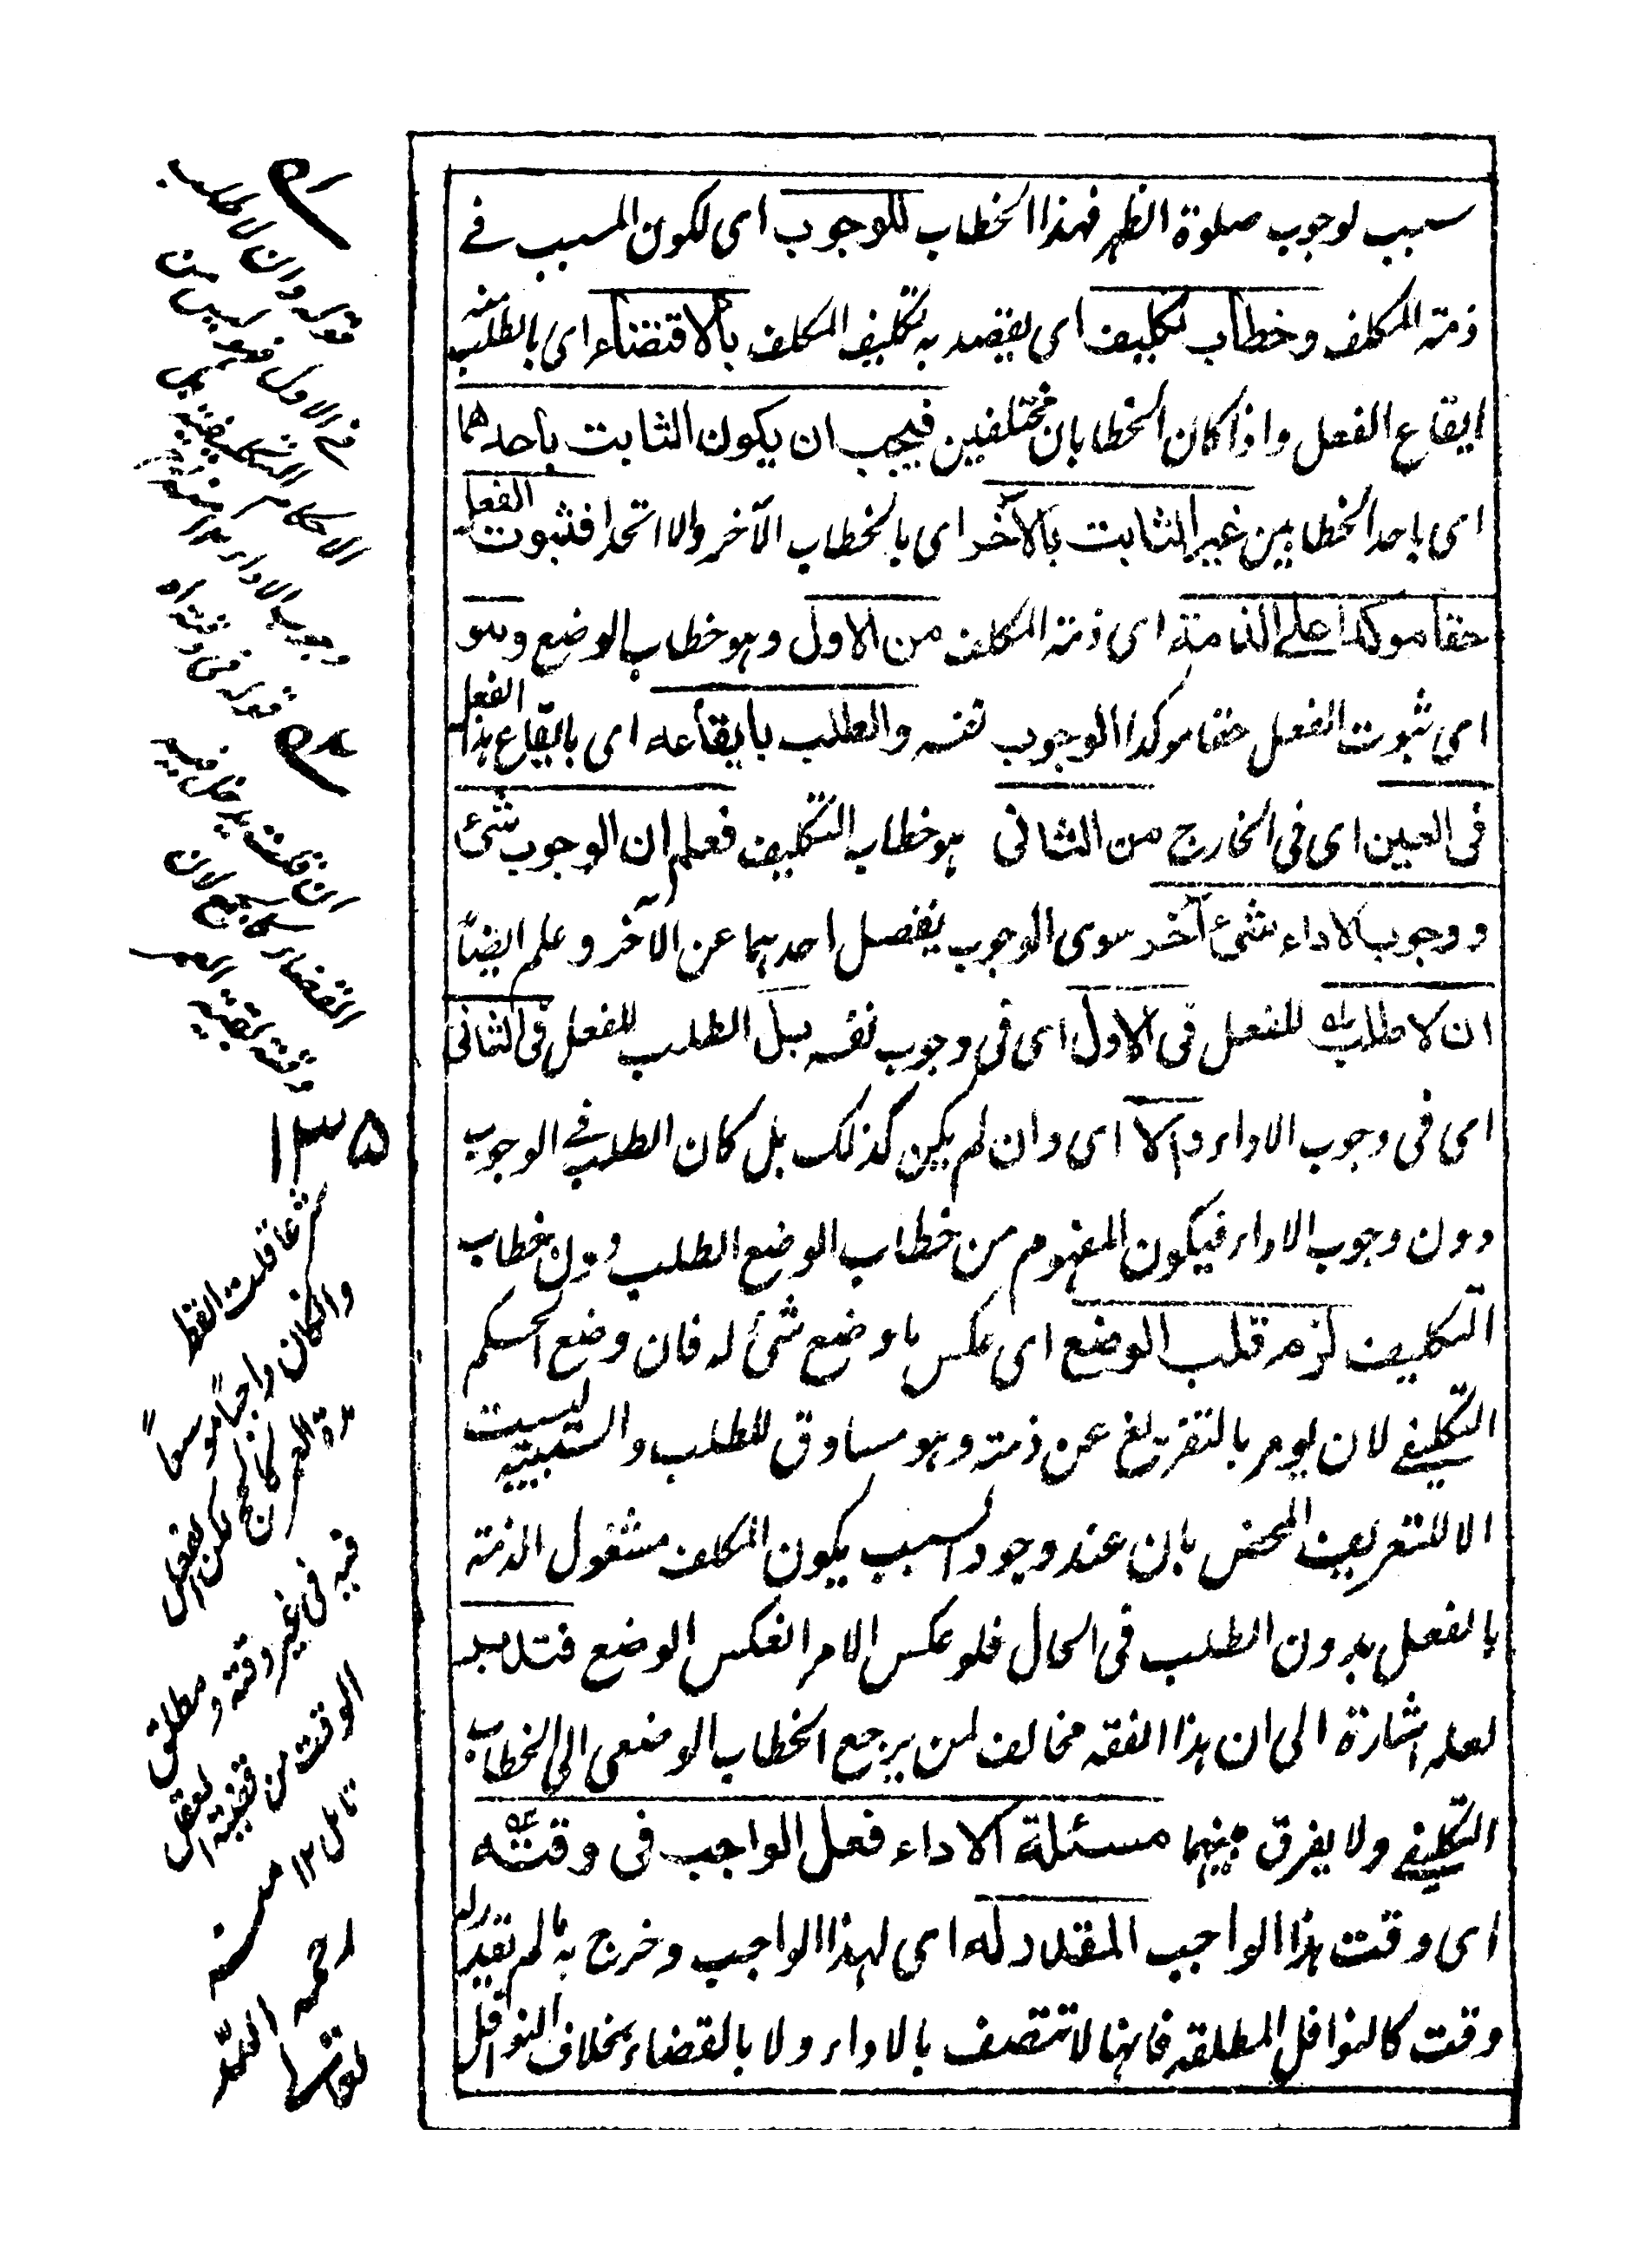 سبب لوجوب صلوة الظهر فهذا الخطاب للوجوب اى لكون المسبب فے
ذمة المكلف وخطاب تكليف اى يقصد به تكليف المكلف بالاقتضاء اى بالطلب منه
ايقاع الفعل واذا كان الخطابان مختلفين فيجب ان يكون الثابت بأحدهما
اى باحد الخطابين غير الثابت بالآخر اى بالخطاب الآخر والا اتحدا فثبوت الفعل
حقا موكدا علے الذمة اى ذمة المكلف من الاول وهو خطاب الوضع وهو
اى ثبوت الفعل حقا موكدا الوجوب نفسه والطلب بأيقاعه اى بايقاع هذا الفعل
فى العين اى فى الخارج من الثانى هو خطاب التكليف فعلم ان الوجوب شئ
ووجوب الاداء شئ آخر سوى الوجوب ينفصل احدهما عن الآخر وعلم ايضاً
ان لا طلب للفعل فى الاول اى فى وجوب نفسه بل الطلب للفعل فى الثانى
اى فى وجوب الاداء والا اى وان لم يكن كذلك بل كان الطلب فے الوجوب
دون وجوب الاداء فيكون المفهوم من خطاب الوضع الطلب دون خطاب
التكليف لزم قلب الوضع اى عكس ما وضع شئ له فان وضع الحكم
التكليفے لان يومر بالتفريغ عن ذمته وهو مساوق للطلب والسببية ليست
الا للتعريف المحض بان عند وجود السبب يكون المكلف مشغول الذمة
بالفعل بدون الطلب فى الحال فلو عكس الامر انعكس الوضع فتدبر
لعله اشارة الى ان هذا الفقه مخالف لمن يرجع الخطاب الوضعى الى الخطاب
التكليفے ولا يفرق بينهما مسئلة الاداء فعل الواجب فى وقته
اى وقت هذا الواجب المقدر له اى لهذا الواجب وخرج به ما لم يقدر له
وقت كالنوافل المطلقة فانها لا تتصف بالاداء ولا بالقضاء بخلاف النوافل
قوله وان لا طلب
فى الاول فهو ليس من
الاحكام التكليفية
وجوب الاداء
قوله فى وقته
ان قلت يدخل فيه
القضاء لان
وقته بقية العمر
١٣٥
شرعا قلت القضاء
وان كان واجباً موسعاً
مدة العمر كالحج لكن الفعل
فيه فى غير وقته ومطلق
الوقت من قضية العقل
تامل ١٢ منه
رحمه الله